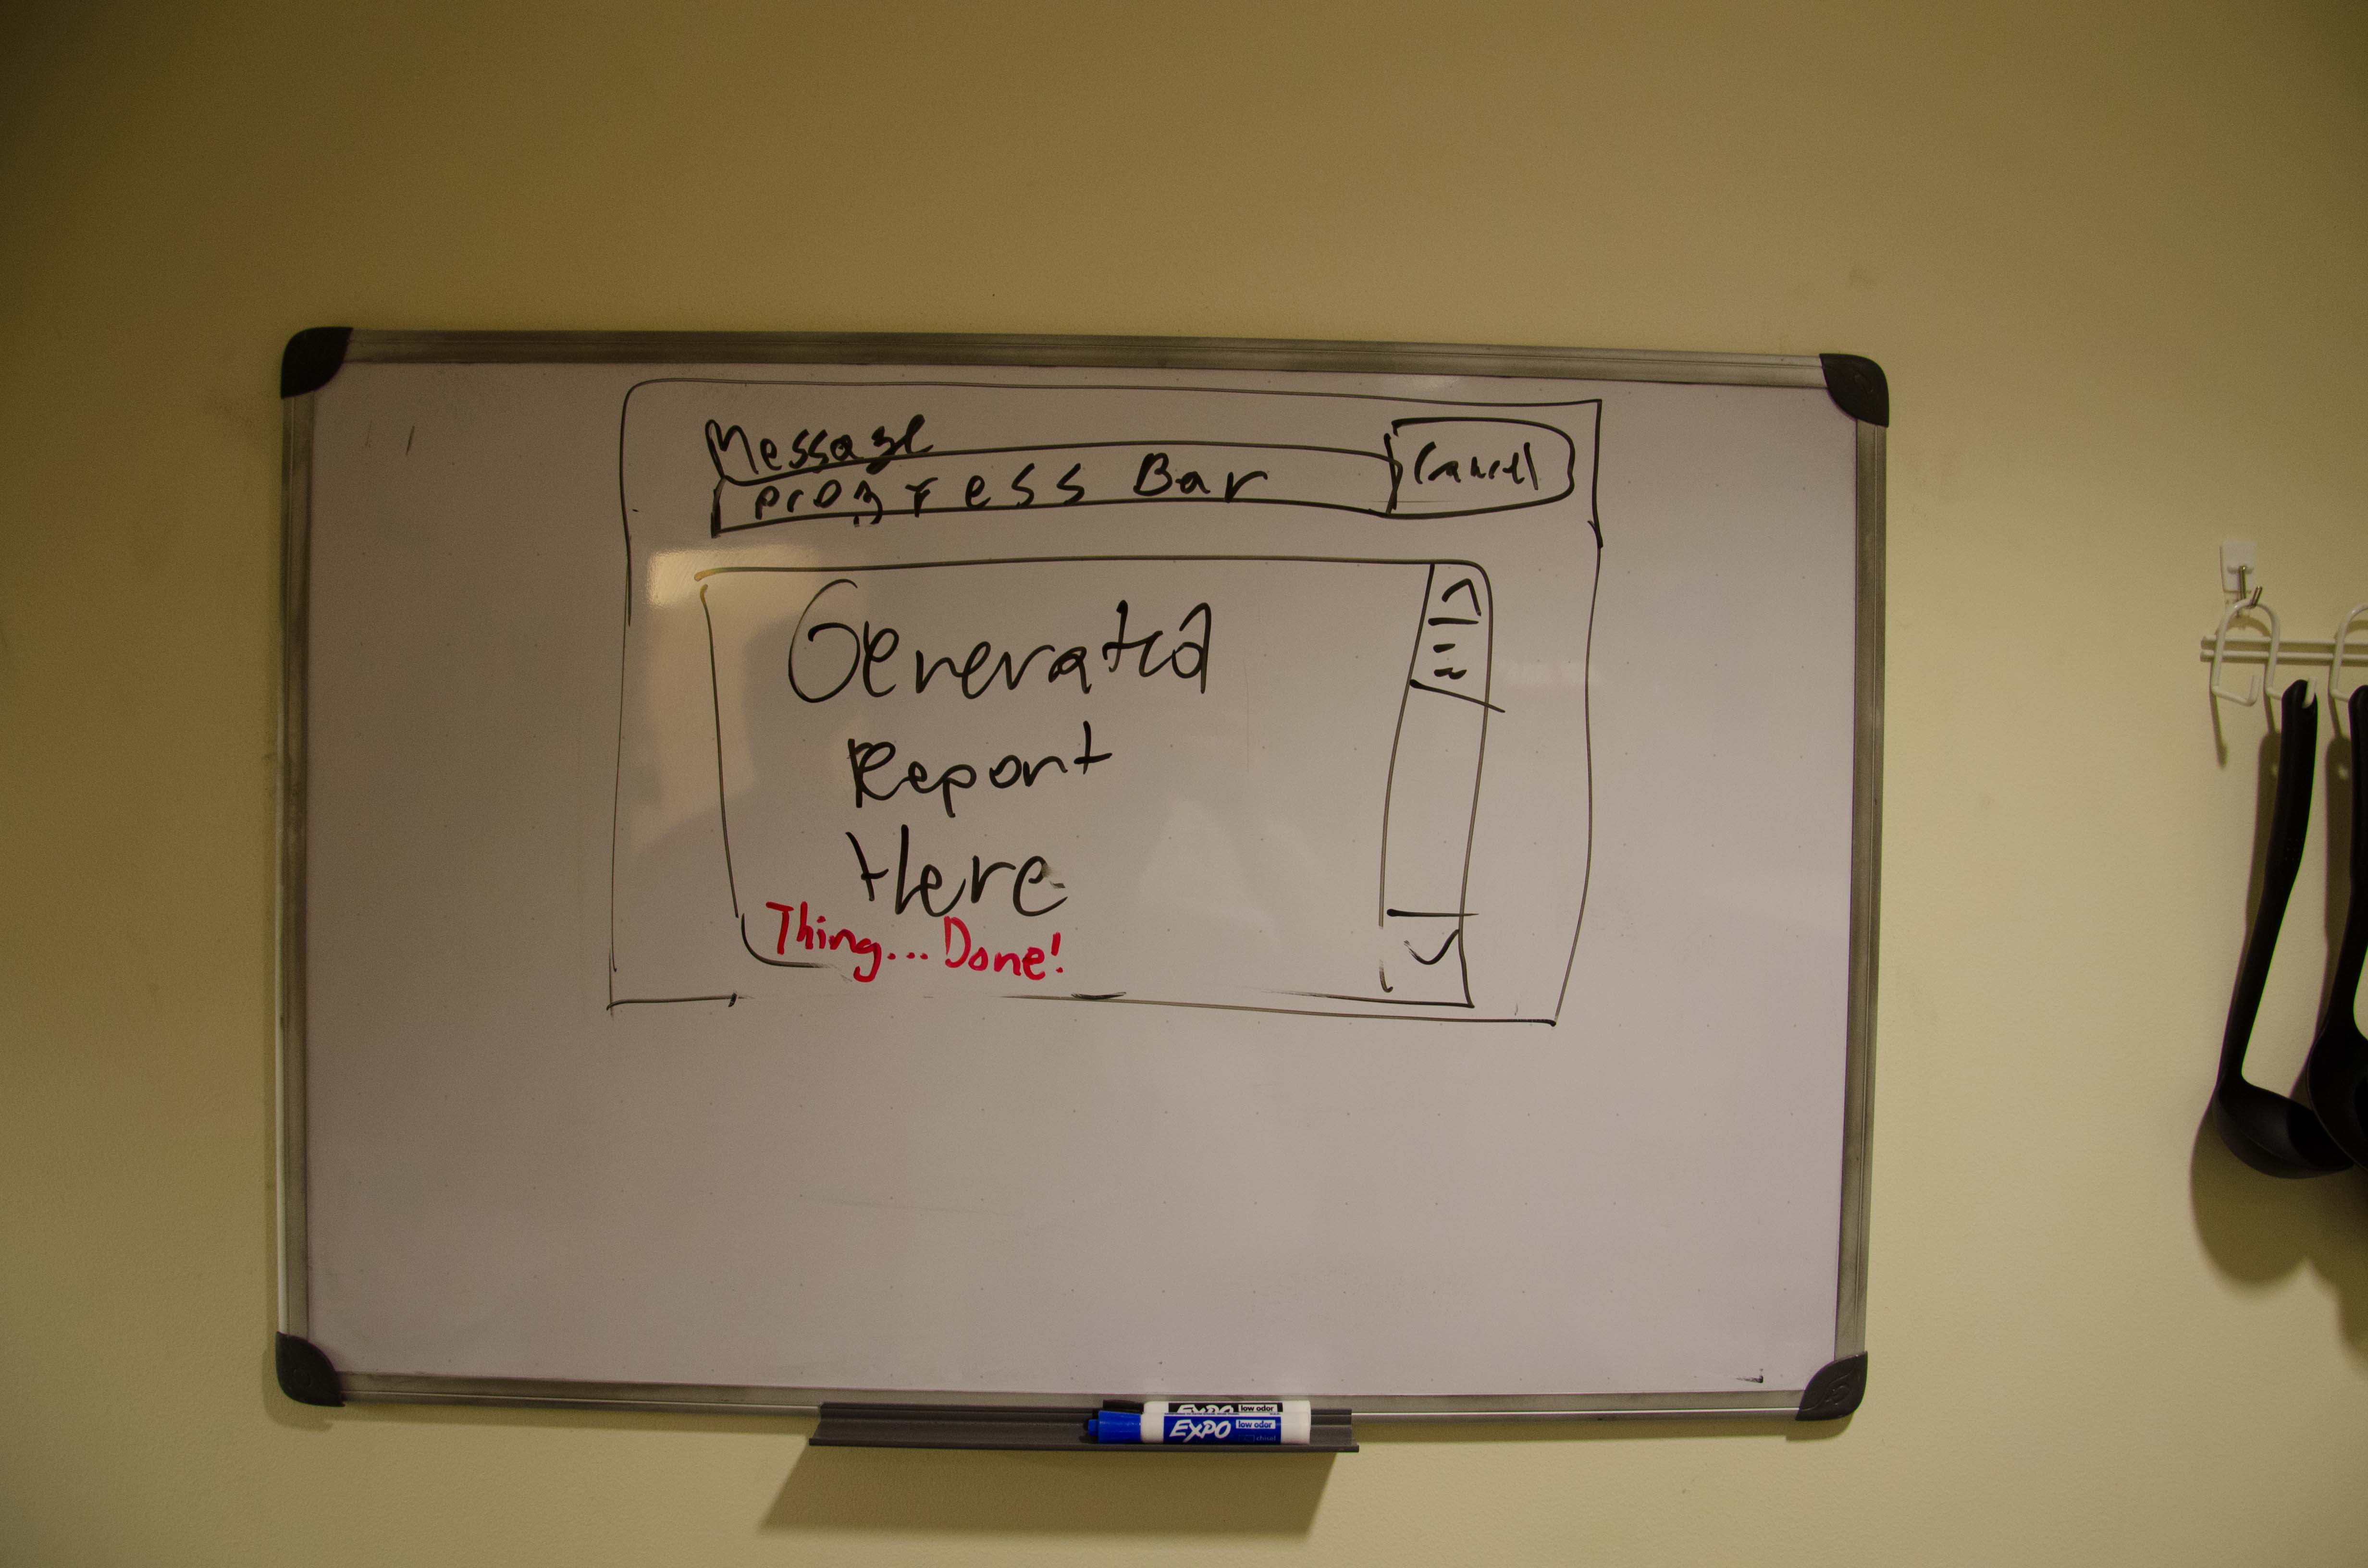 Message
Progress Bar
Cancel
Generated
Report
Here
Thing... Done!
EXPO low odor
EXPO low odor